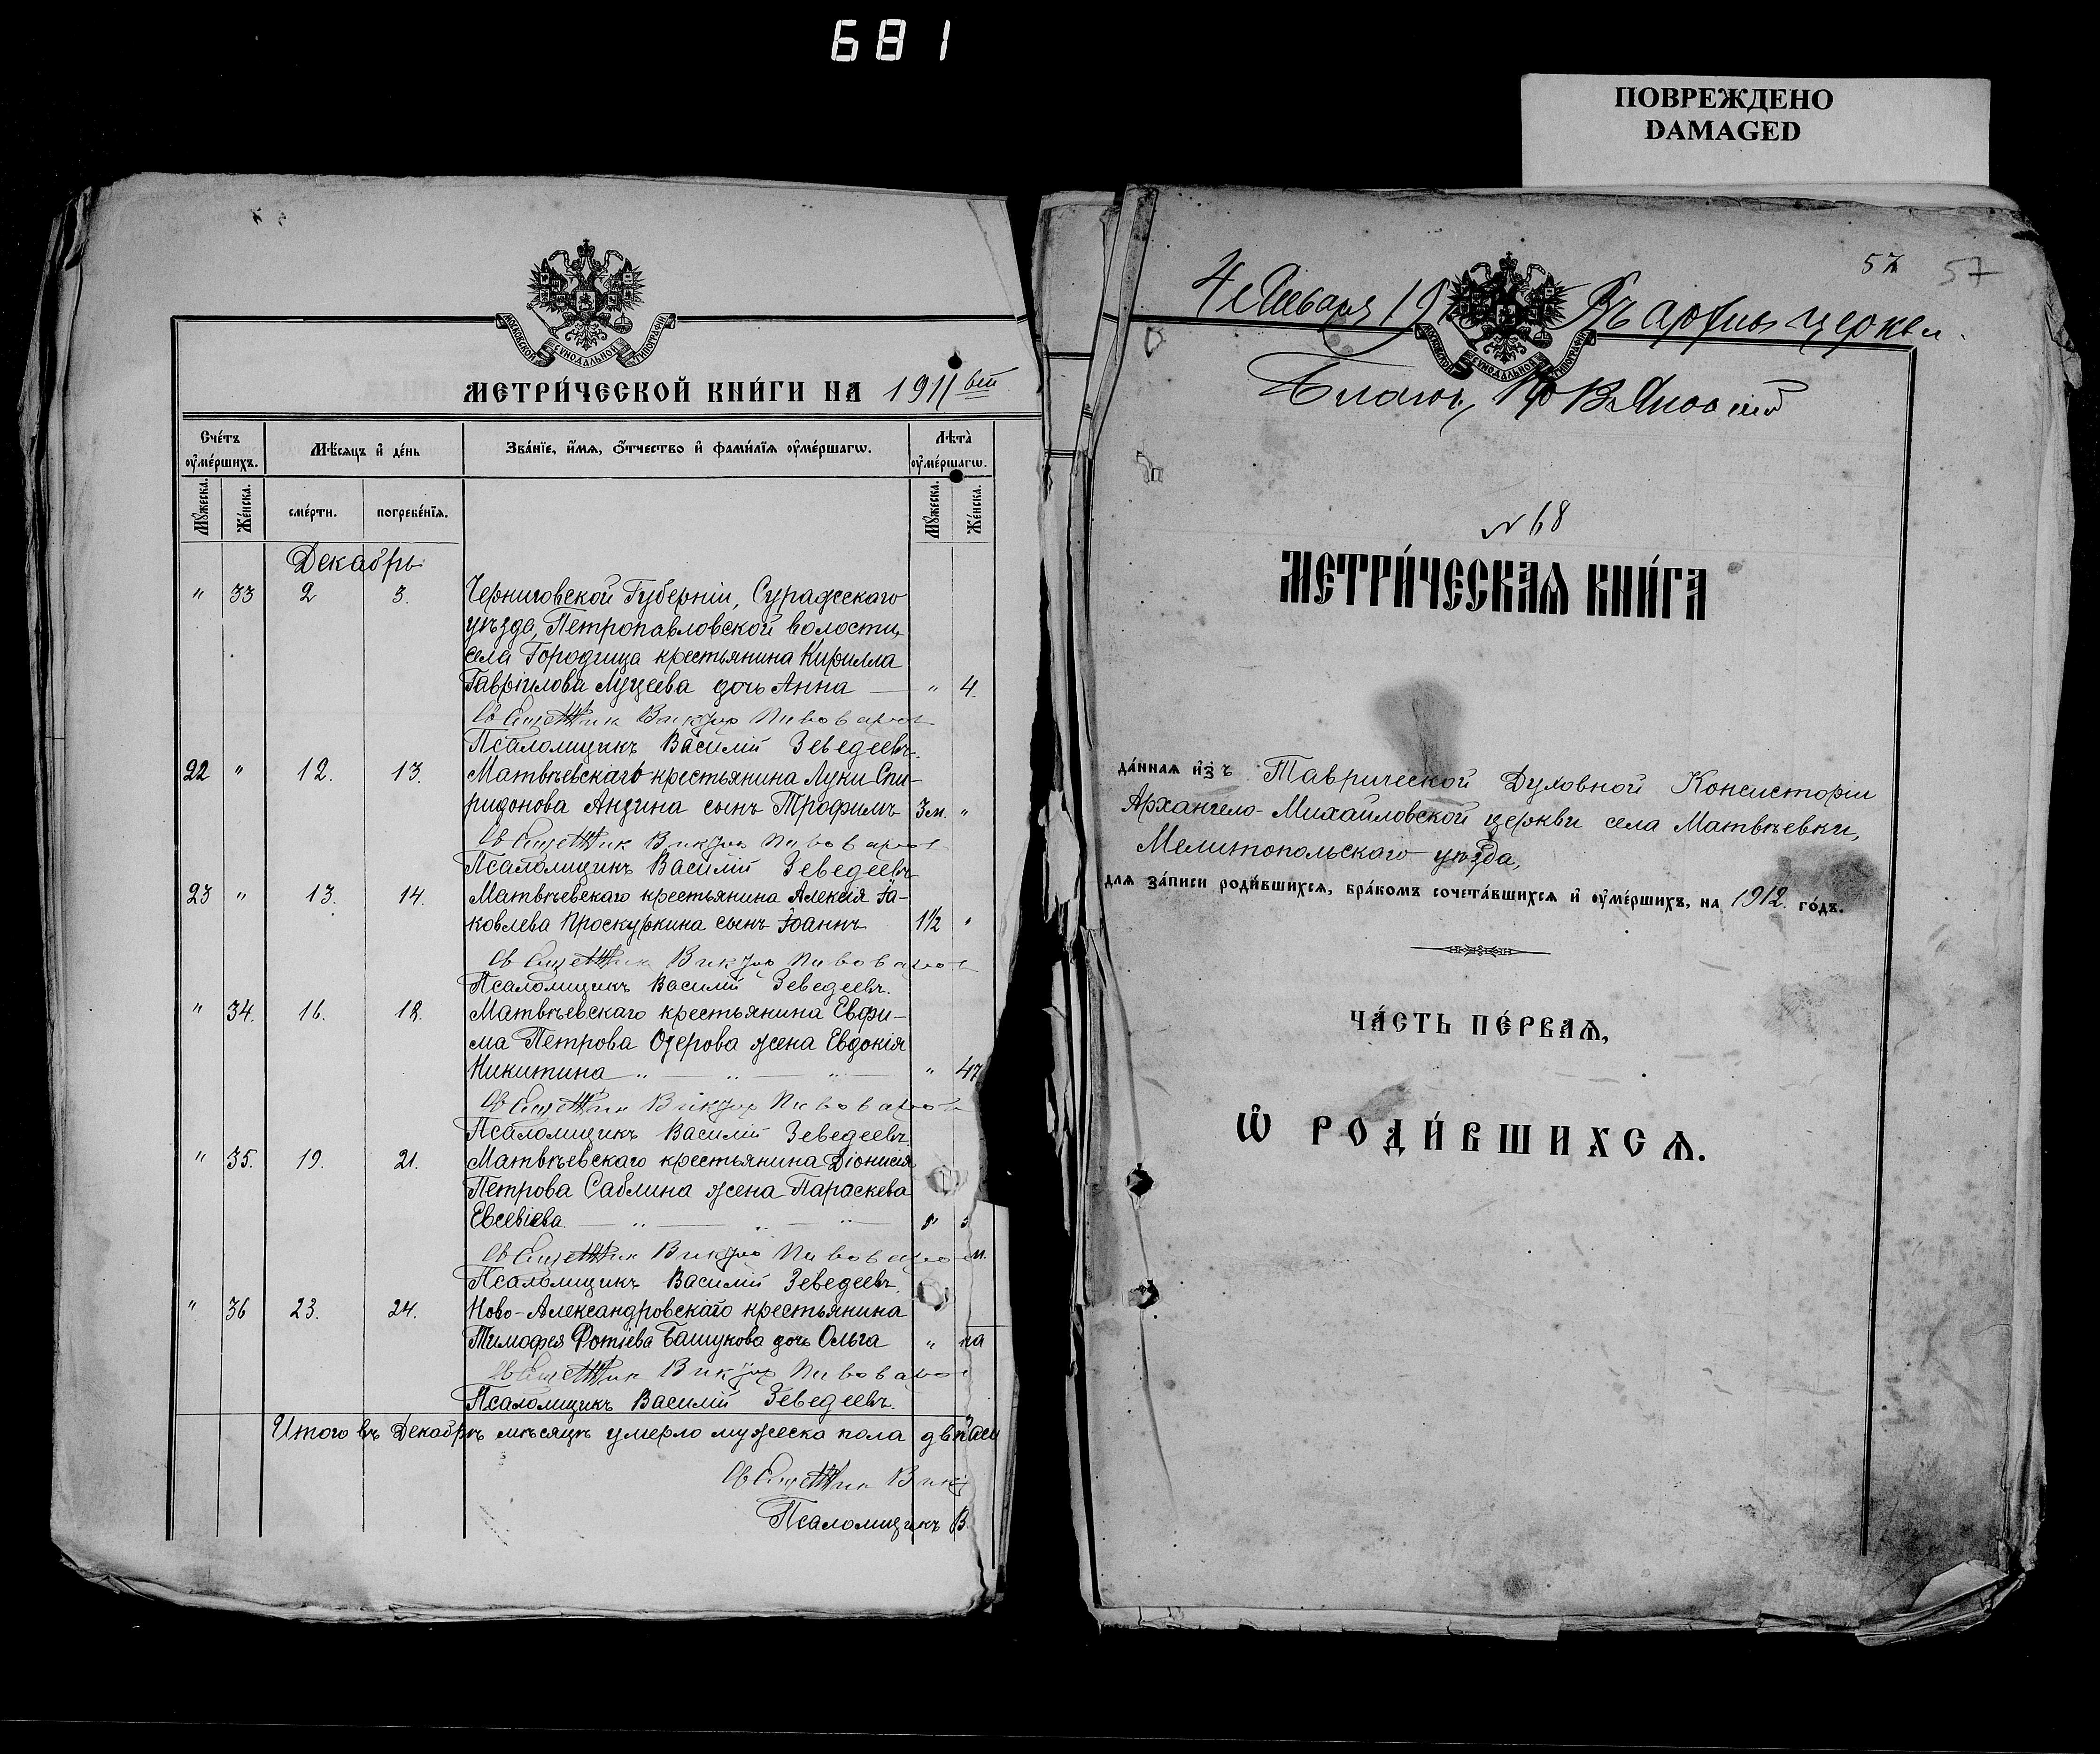 681
ПОВРЕЖДЕНО
DAMAGED
МОСКОВСКОЙ СѴНОДАЛЬНОЙ ТИПОГРАФІИ
МЕТРИ́ЧЕСКОЙ КНИ́ГИ НА 1911
Сче́тъ ᲂу҆ме́ршихъ.
Мѣ́сяцъ и҆ де́нь
Зва́нїе, и҆́мѧ, ѻ҆́тчество и҆ фами́лїѧ ᲂу҆ме́ршагѡ.
Лѣта̀ ᲂу҆ме́ршагѡ.
Мꙋ́жеска.
Же́нска.
сме́рти.
погребе́нїѧ.
Мꙋ́жеска.
Же́нска.
Декабрь
" 33 2 3. Черниговской Губерніи, Суражскаго
уѣзда, Петропавловской волости,
села Городища крестьянина Кирилла
Гавріилова Муцева дочь Анна — " 4.
Священник Виктор Пивоваров
Псаломщикъ Василій Зеведеевъ.
22 " 12. 13. Матвѣевскаго крестьянина Луки Спи-
ридонова Андина сынъ Трофимъ 3 м. "
Священник Виктор Пивоваров
Псаломщикъ Василій Зеведеевъ
23 " 13. 14. Матвѣевскаго крестьянина Алексія Іа-
ковлева Проскуркина сынъ Іоаннъ 1½ "
Священник Виктор Пивоваров
Псаломщикъ Василій Зеведеевъ.
" 34. 16. 18. Матвѣевскаго крестьянина Евфи-
ма Петрова Озерова жена Евдокія
Никитина " 47
Священник Виктор Пивоваров
Псаломщикъ Василій Зеведеевъ.
" 35. 19. 21. Матвѣевскаго крестьянина Діонисія
Петрова Саблина жена Параскева
Евсевіева "
Священник Виктор Пивоваров
Псаломщикъ Василій Зеведеевъ.
" 36 23. 24. Ново-Александровскаго крестьянина
Тимофея Фотіева Башукова дочь Ольга "
Священник Виктор Пивоваров
Псаломщикъ Василій Зеведеевъ.
Итого въ Декабрѣ мѣсяцѣ умерло мужеска пола
Священник Вик
Псаломщикъ В
57 57
4 Января 19 Въ архивъ церкви.
МОСКОВСКОЙ СѴНОДАЛЬНОЙ ТИПОГРАФІИ
№ 68
МЕТРИ́ЧЕСКАѦ КНИ́ГА
да́ннаѧ и҆зъ Таврической Духовной Консисторіи
Архангело-Михайловской церкви села Матвѣевки,
Мелитопольскаго уѣзда,
длѧ за́писи роди́вшихсѧ, бра́комъ сочета́вшихсѧ и҆ ᲂу҆ме́ршихъ, на 1912 го́дъ.
ЧА́СТЬ ПЕ́РВАѦ,
Ѡ҆ РОДИ́ВШИХСѦ.